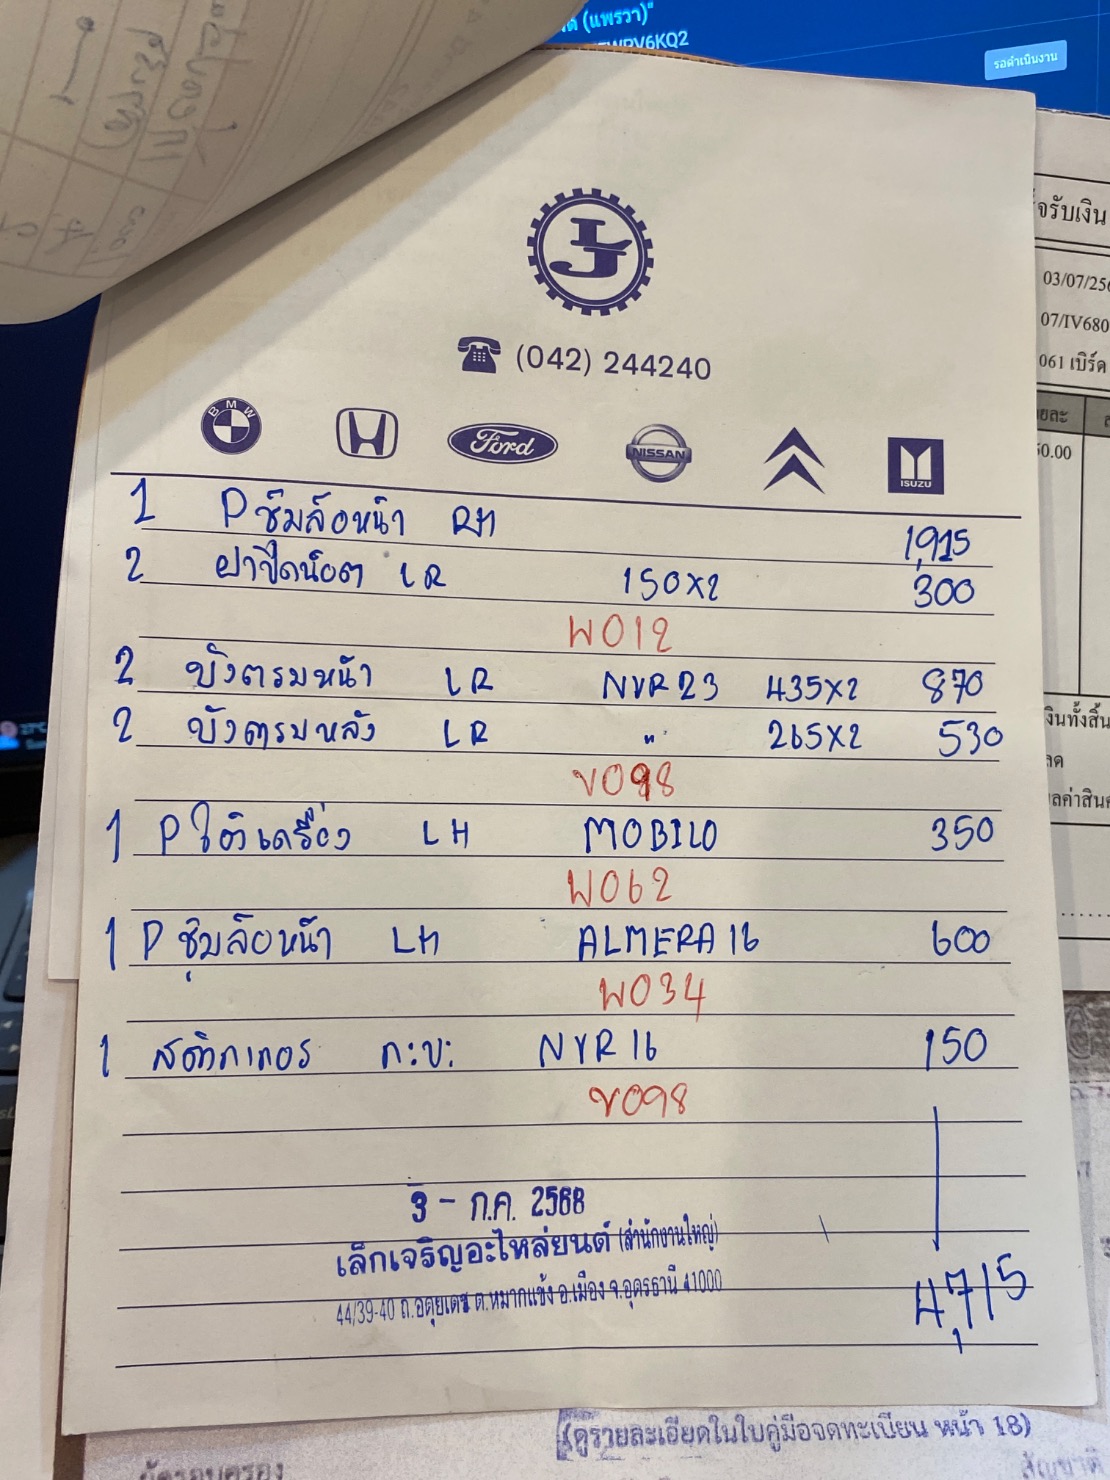 (แพรวา)"
รอดำเนินงาน
(042) 244240
BMW
Ford
NISSAN
ISUZU
1 P ซุ้มล้อหน้า RH 1,915
2 ฝาปิดน็อต LR 150x2 300
W012
2 บังตรมหน้า LR NVR23 435x2 870
2 บังตรมหลัง LR " 265x2 530
V098
1 P ใต้เครื่อง LH MOBILO 350
W062
1 P ซุ้มล้อหน้า LH ALMERA 16 600
W034
1 สติกเกอร กะบะ NVR 16 150
V098
4,715
3 - ก.ค. 2568
เล็กเจริญอะไหล่ยนต์ (สำนักงานใหญ่)
44/39-40 ถ.อดุยเดช ต.หมากแข้ง อ.เมือง จ.อุดรธานี 41000
รับเงิน
03/07/25
07/IV680
061 เบิร์ด
0.00
(ดูรายละเอียดในใบคู่มือจดทะเบียน หน้า 18)